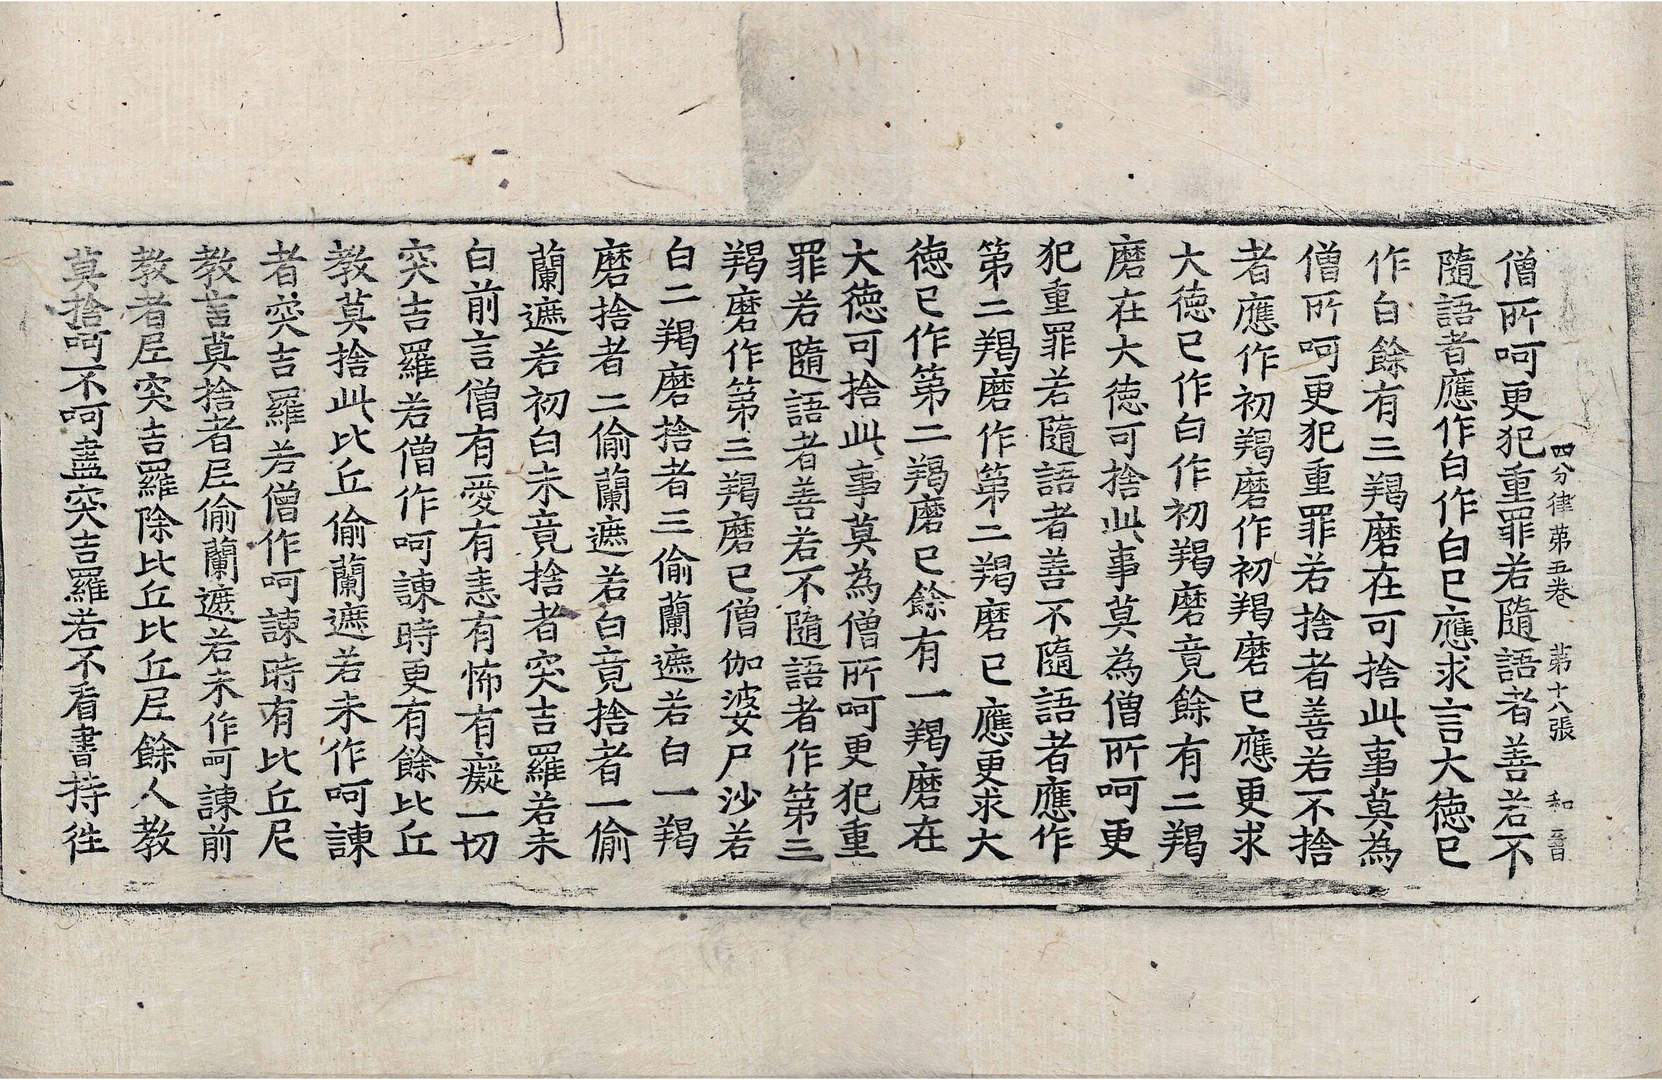 四分律第五卷 第十八張 和
僧所呵更犯重罪若隨語者善若不
隨語者應作白作白已應求言大德已
作白餘有三羯磨在可捨此事莫為
僧所呵更犯重罪若捨者善若不捨
者應作初羯磨作初羯磨已應更求
大德已作白作初羯磨竟餘有二羯
磨在大德可捨此事莫為僧所呵更
犯重罪若隨語者善不隨語者應作
第二羯磨作第二羯磨已應更求大
德已作第二羯磨已餘有一羯磨在
大德可捨此事莫為僧所呵更犯重
罪若隨語者善若不隨語者作第三
羯磨作第三羯磨已僧伽婆尸沙若
白二羯磨捨者三偷蘭遮若白一羯
磨捨者二偷蘭遮若白竟捨者一偷
蘭遮若初白未竟捨者突吉羅若未
白前言僧有愛有恚有怖有癡一切
突吉羅若僧作呵諫時更有餘比丘
教莫捨此比丘偷蘭遮若未作呵諫
者突吉羅若僧作呵諫時有比丘尼
教言莫捨者尼偷蘭遮若未作呵諫前
教者尼突吉羅除比丘比丘尼餘人教
莫捨呵不呵盡突吉羅若不看書持往